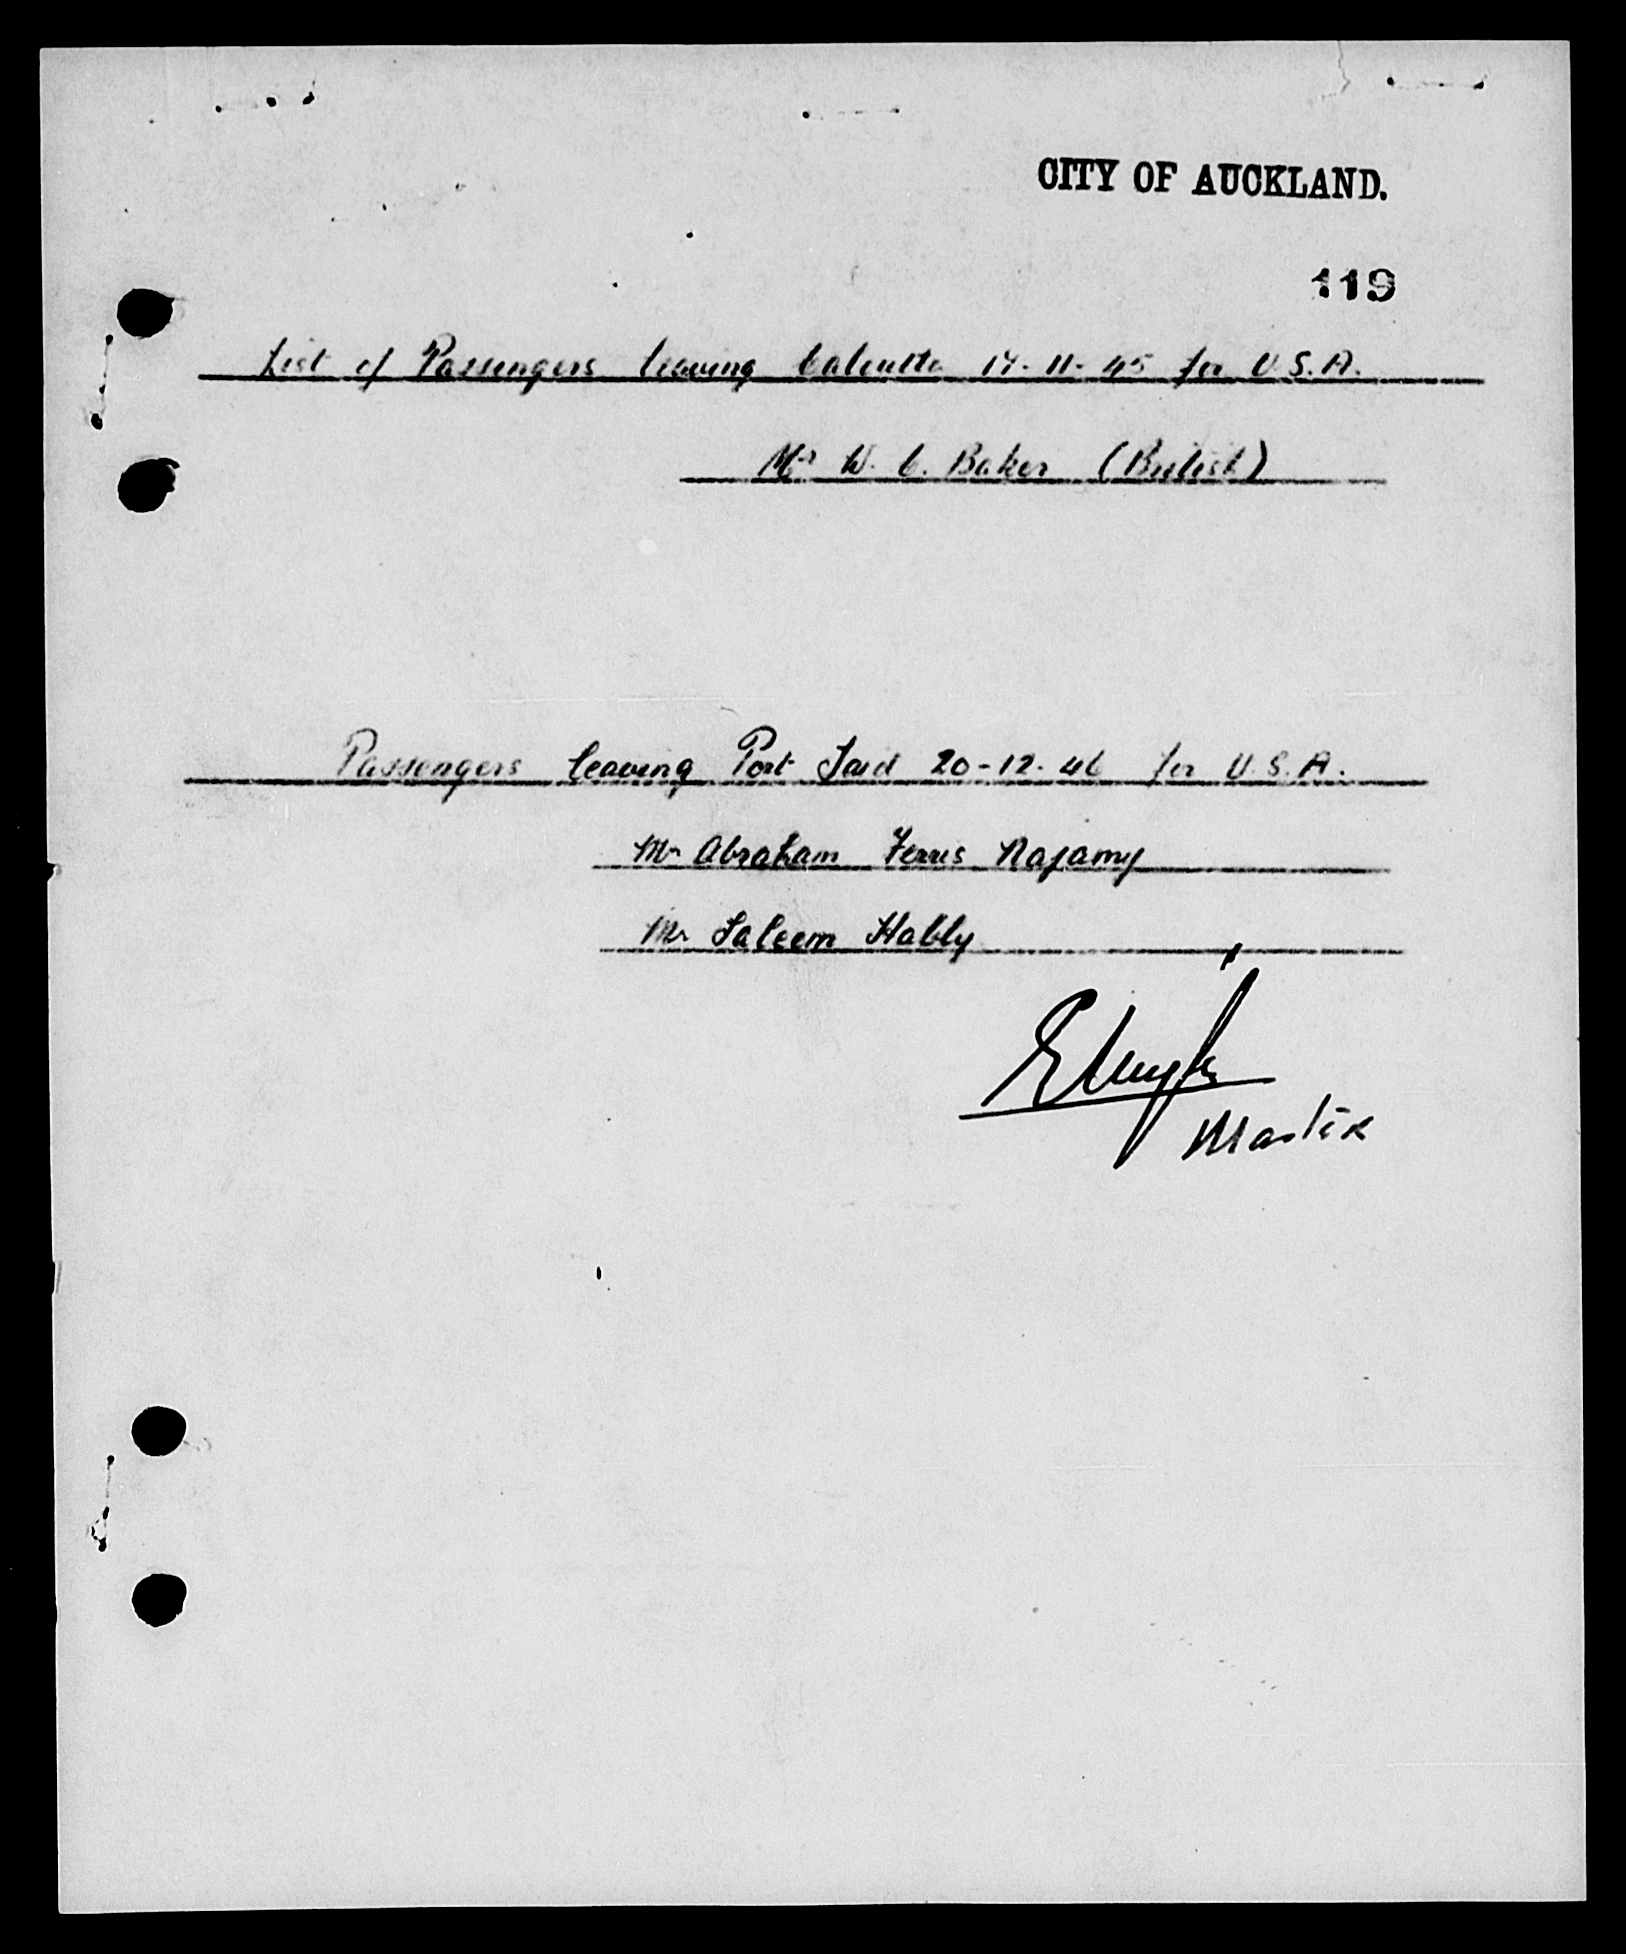 CITY OF AUCKLAND.
119
List of Passengers leaving Calcutta 17-11-45 for U.S.A.
Mr W. C. Baker (British)
Passengers leaving Port Said 20-12-46 for U.S.A.
Mr Abraham Ferris Najamy
Mr Saleem Hably
Master